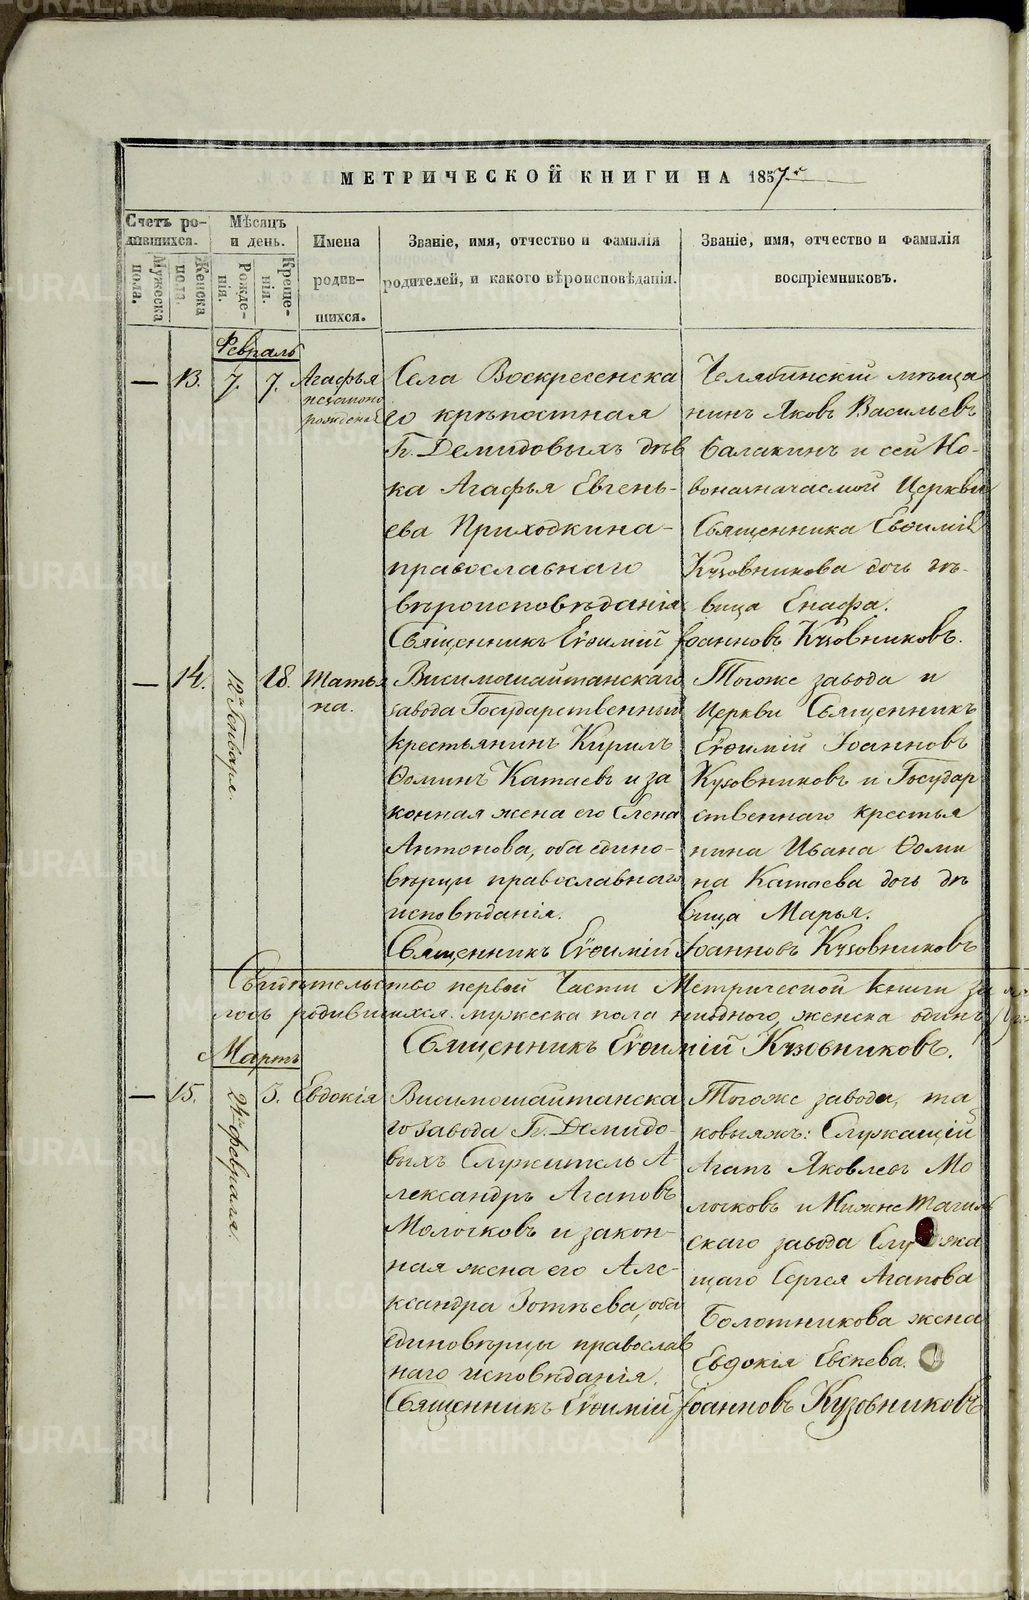 МЕТРИЧЕСКОЙ КНИГИ НА 1857 г
Счетъ ро-
дившихся.
Мужеска
пола.
Женска
пола.
Мѣсяцъ
и день.
Рожде-
нія.
Креще-
нія.
Имена
родив-
шихся.
Званіе, имя, отчество и фамилія
родителей, и какого вѣроисповѣданія.
Званіе, имя, отчество и фамилія
воспріемниковъ.
Февраль
— 13. 7. 7. Агафья
незаконно
рожденная
Села Воскресенска
го крѣпостная
Гг. Демидовыхъ дѣв
ка Агафья Евгень-
ева Приходкина-
православнаго
вѣроисповѣданія
Челябинскій мѣща
нинъ Яковъ Васильевъ
Балакинъ и сей Но-
воназначаемой Церкви
Священника Евѳимія
Кузовникова дочь дѣ-
вица Енафа.
Священникъ Еѵѳимій Іоанновъ Кузовниковъ.
— 14. 12го Генваря. 18. Татья
на.
Висимошайтанскаго
завода Государственный
крестьянинъ Кирилъ
Ѳоминъ Катаевъ и за
конная жена его Елена
Антонова, оба едино-
вѣрцы православнаго
исповѣданія.
Тогоже завода и
Церкви Священникъ
Еѵѳимій Іоанновъ
Кузовниковъ и Государ
ственнаго крестья
нина Ивана Ѳоми
на Катаева дочь дѣ
вица Марья.
Священникъ Еѵѳимій Іоанновъ Кузовниковъ
Свидѣтельство первой Части Метрической Книги за
лось родившихся. мужеска пола ниодного, женска одинъ
Священникъ Еѵѳимій Кузовниковъ.
Мартъ
— 15. 24го февраля. 3. Евдокія
Висимошайтанска
го завода Гг. Демидо-
выхъ Служитель А
лександръ Агаповъ
Молочковъ и закон-
ная жена его Але-
ксандра Зотѣева, оба
единовѣрцы православ
наго исповѣданія.
Тогоже завода, та
ковыхжъ: Служащій
Агапъ Яковлевъ Мо
лочковъ и НижнеТагиль
скаго завода Служа
щаго Сергея Агапова
Болотникова жена
Евдокія Евсѣева.
Священникъ Еѵѳимій Іоанновъ Кузовниковъ
METRIKI.GASO-URAL.RU